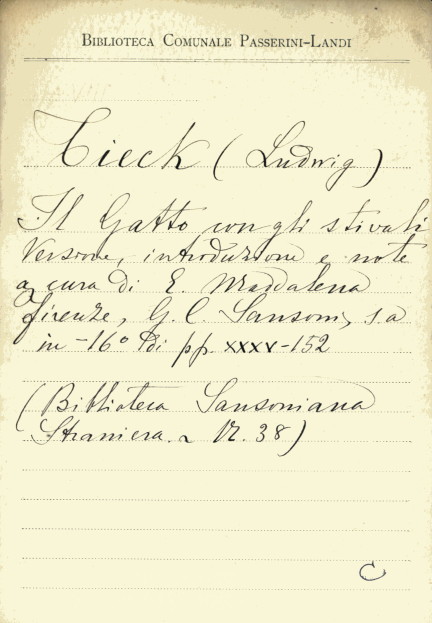 BIBLIOTECA COMUNALE PASSERINI-LANDI
Tieck (Ludwig)
Il Gatto con gli stivali
Versione, introduzione e note
a cura di E. Maddalena
Firenze, G. C. Sansoni, s.a
in -16° di pp. XXXV-152
(Biblioteca Sansoniana
Straniera. N. 38)
C